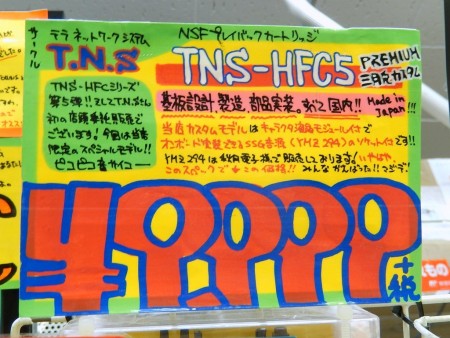 サークル
テラ ネットワーク システム
T.N.S
NSFプレイバックカートリッジ
TNS-HFC5
PREMIUM
三月カスタム
TNS-HFCシリーズ
第5弾!! そしてT.N.Sさん
初の店頭委託販売で
ございます! 今回は当店
限定のスペシャルモデル!!
ピコピコ音サイコー
基板設計、製造、部品実装、すべて国内!!
Made in
Japan!!!
当店カスタムモデルはキャラクタ液晶モジュール付で
オンボード実装できるSSG音源(YMZ294)のソケット付です!!
YMZ294は秋月電子様で販売しております。いやはや
このスペックでこの価格!! みんながんばった!!
¥9,999
+税